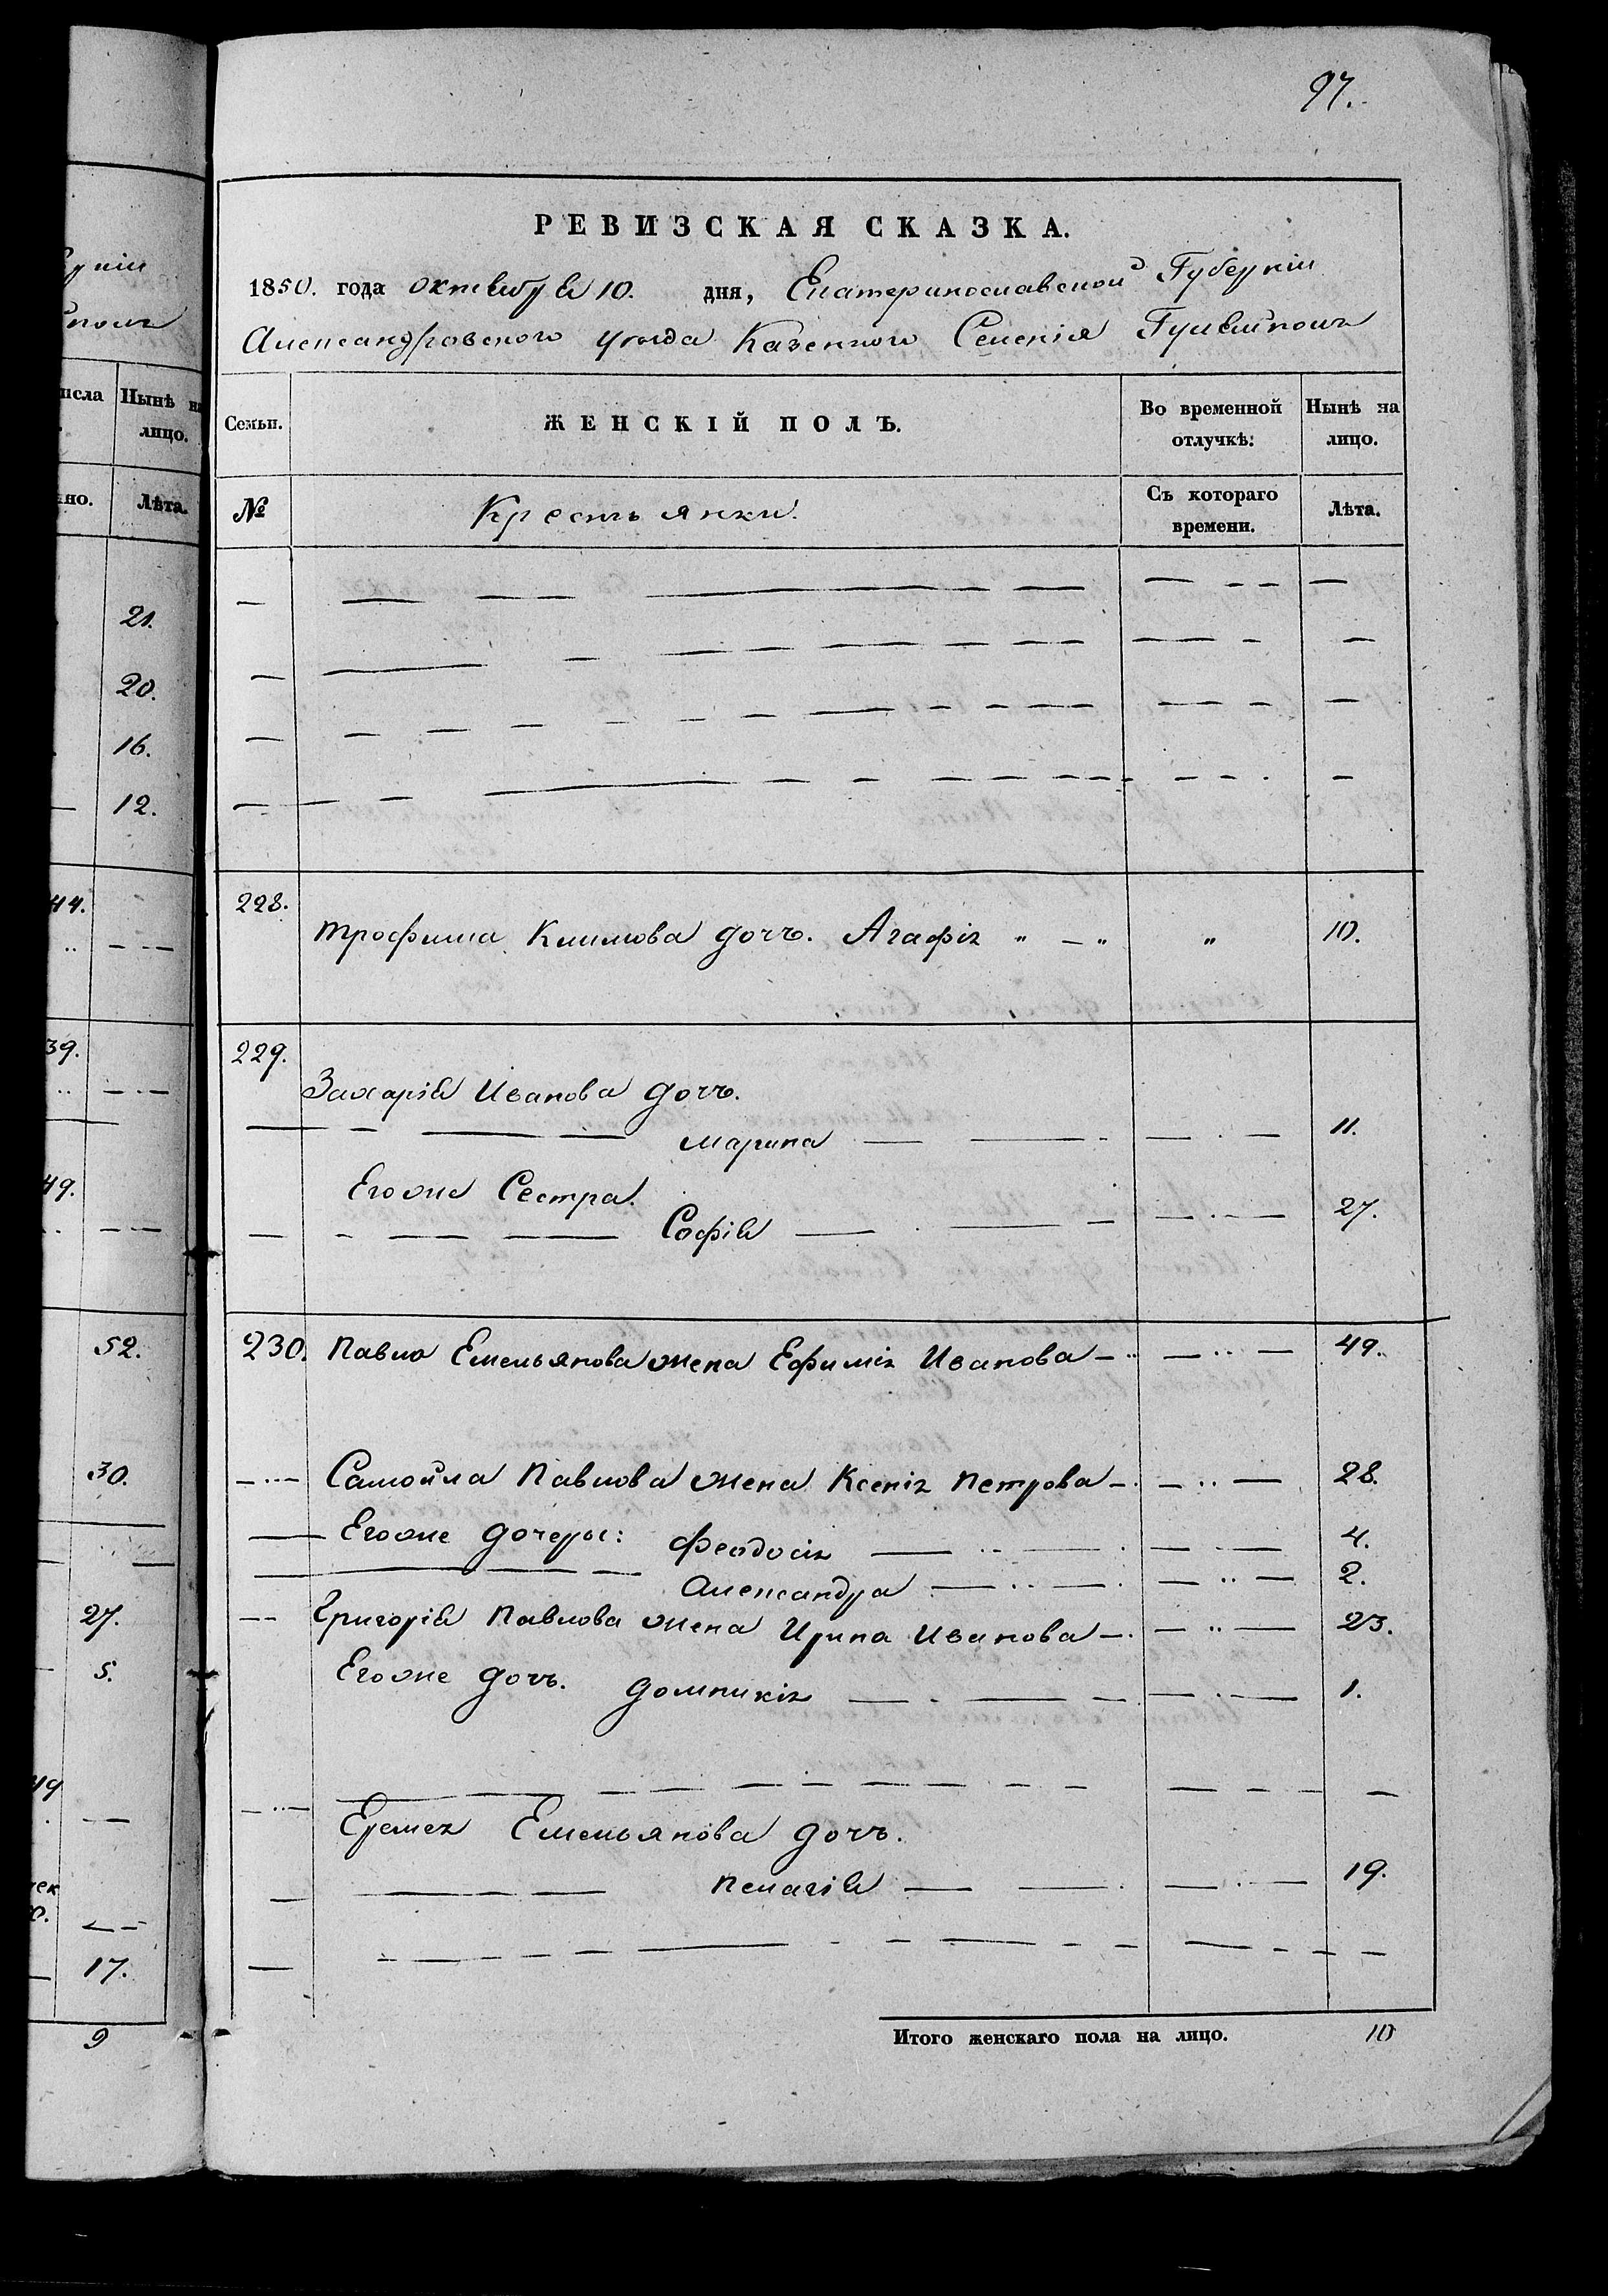 97.
РЕВИЗСКАЯ СКАЗКА.
1850. года октября 10. дня, Екатеринославской Губерніи
Александровского уезда Казенного Селенія Гуляйполя
Семьи. ЖЕНСКІЙ ПОЛЪ. Во временной отлучкѣ: Нынѣ на лицо.
№ Крестьянки. Съ котораго времени. Лѣта.
228. Трофима Климова дочь. Агафія " — " " 10.
229.
Захарія Иванова дочь.
Марина 11.
Егоже Сестра.
Софія 27.
230. Павла Емельянова жена Ефимія Иванова 49.
Самойла Павлова жена Ксенія Петрова 28.
Егоже дочеры: Феодосія 4.
Александра 2.
Григорія Павлова жена Ирина Иванова 23.
Егоже дочь. Домникія 1.
Еремея Емельянова дочь.
Пелагія 19.
Итого женскаго пола на лицо. 10
Нынѣ на
лицо.
Лѣта.
21.
20.
16.
12.
44.
39.
49.
52.
30.
27.
5.
49
17.
9